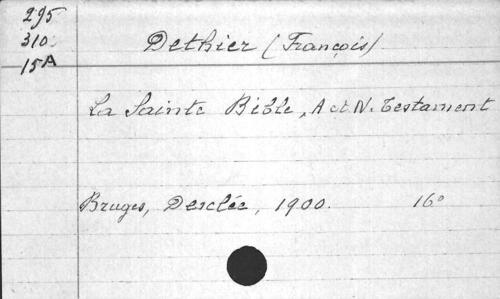 295
310
15A
Dethier (François)
La Sainte Bible, A et N. Testament
Bruges, Desclée, 1900. 16°